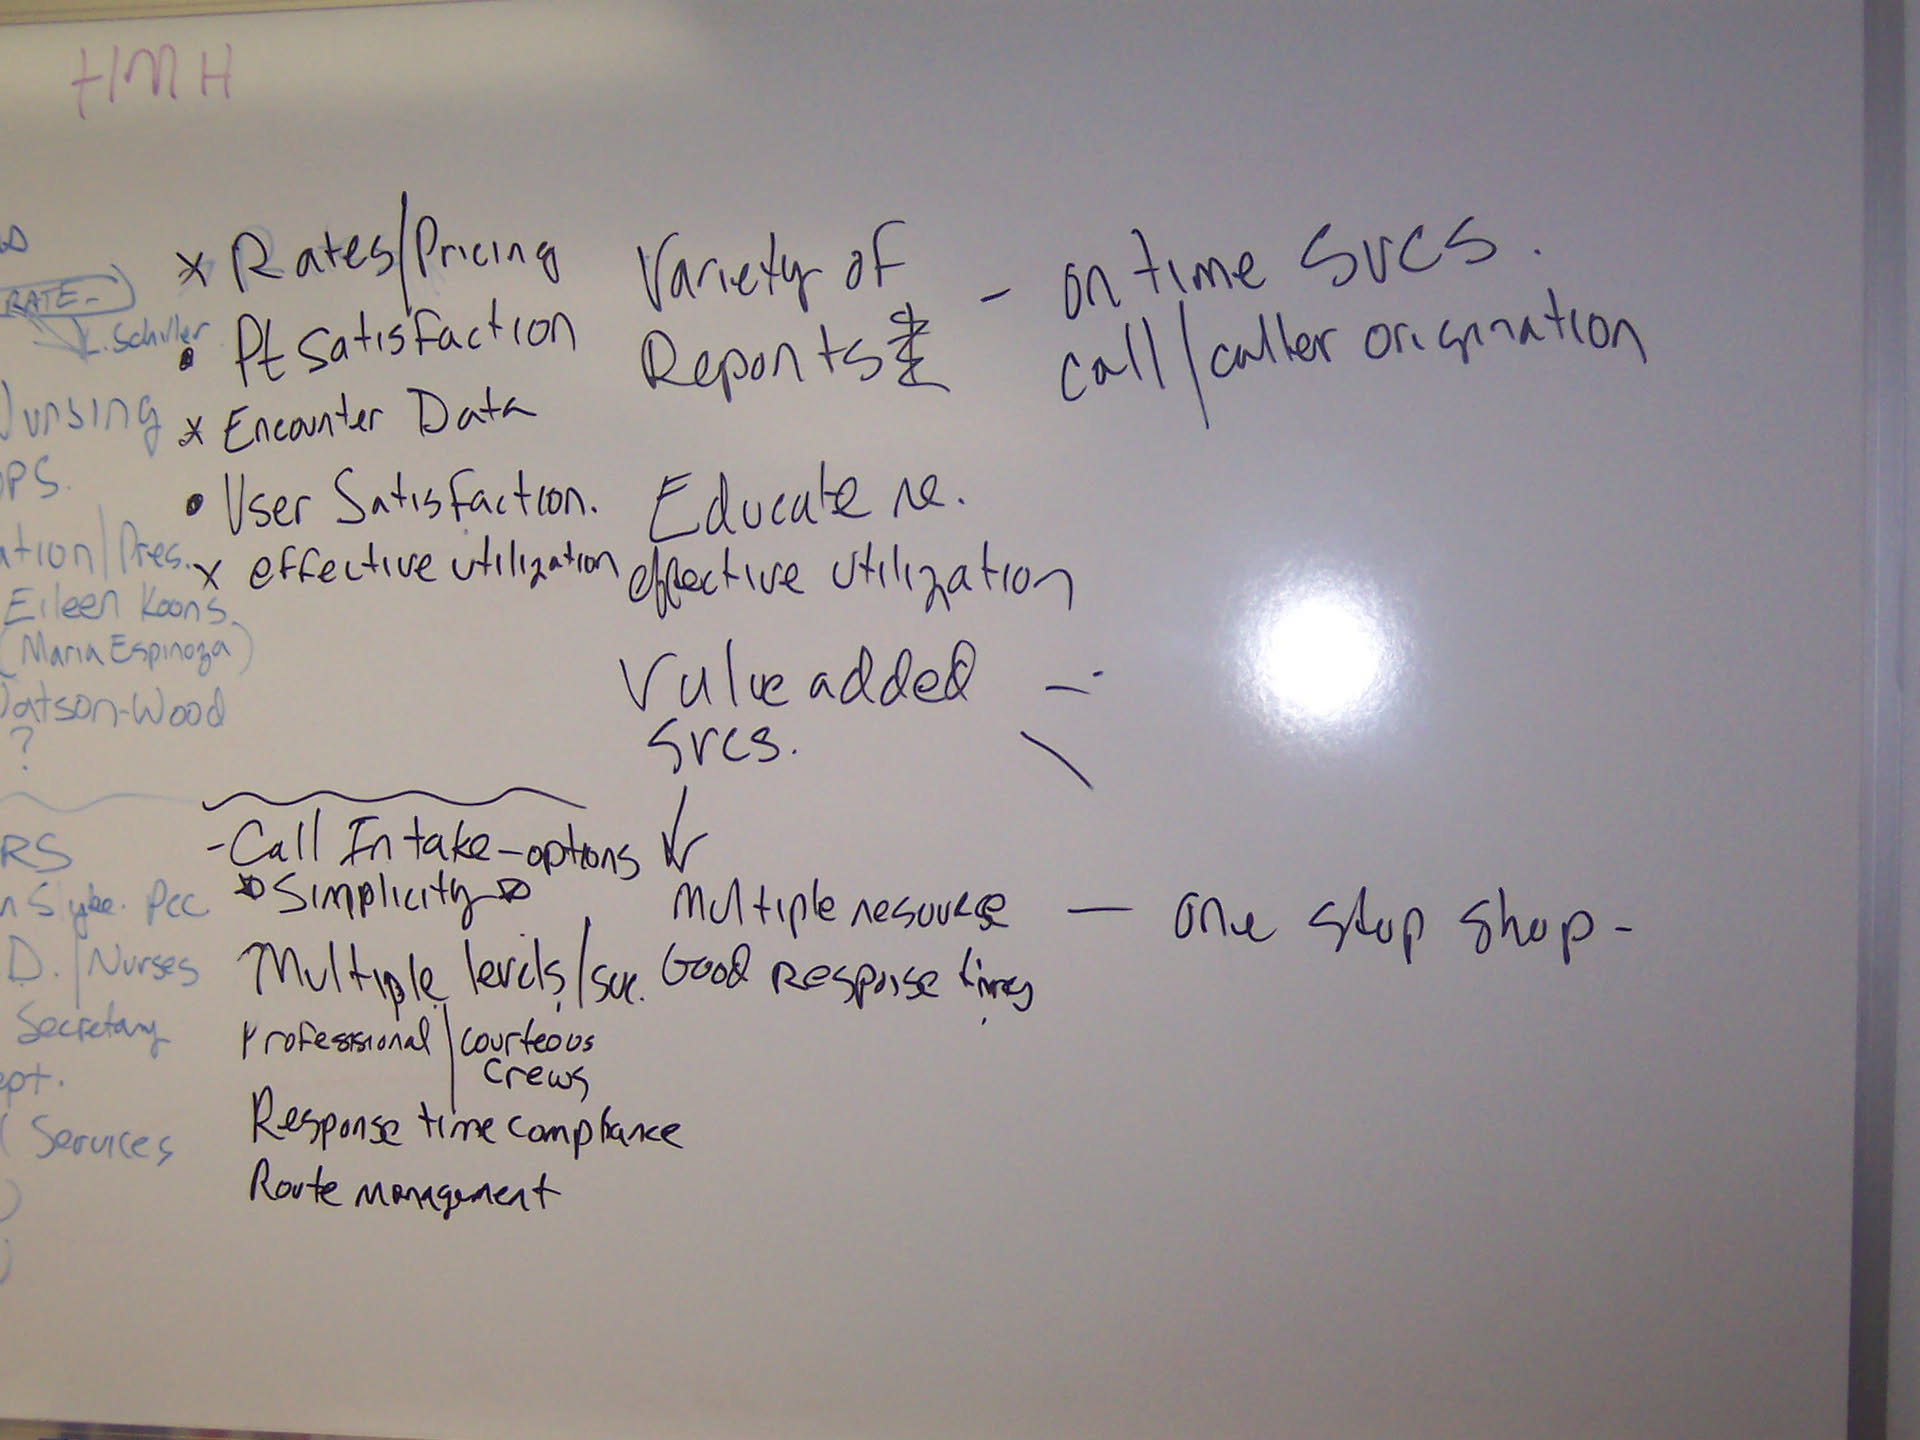 HMH
RATE-
L. Schuler
ursing
OPS.
ation/Pres.
Eileen Koons
(Maria Espinoza)
atson-Wood
?
RS
Slyke. Pcc
D. / Nurses
Secretary
ept.
Services
x Rates/Pricing
• Pt Satisfaction
x Encounter Data
• User Satisfaction.
x effective utilization
- Call Intake - options
Simplicity
Multiple levels/svc.
Professional / Courteous
Crews
Response time compliance
Route management
Variety of
Reports
- on time svcs.
call/caller origination
Educate re.
effective utilization
Value added -
svcs.
Multiple resource - one stop shop -
Good Response times